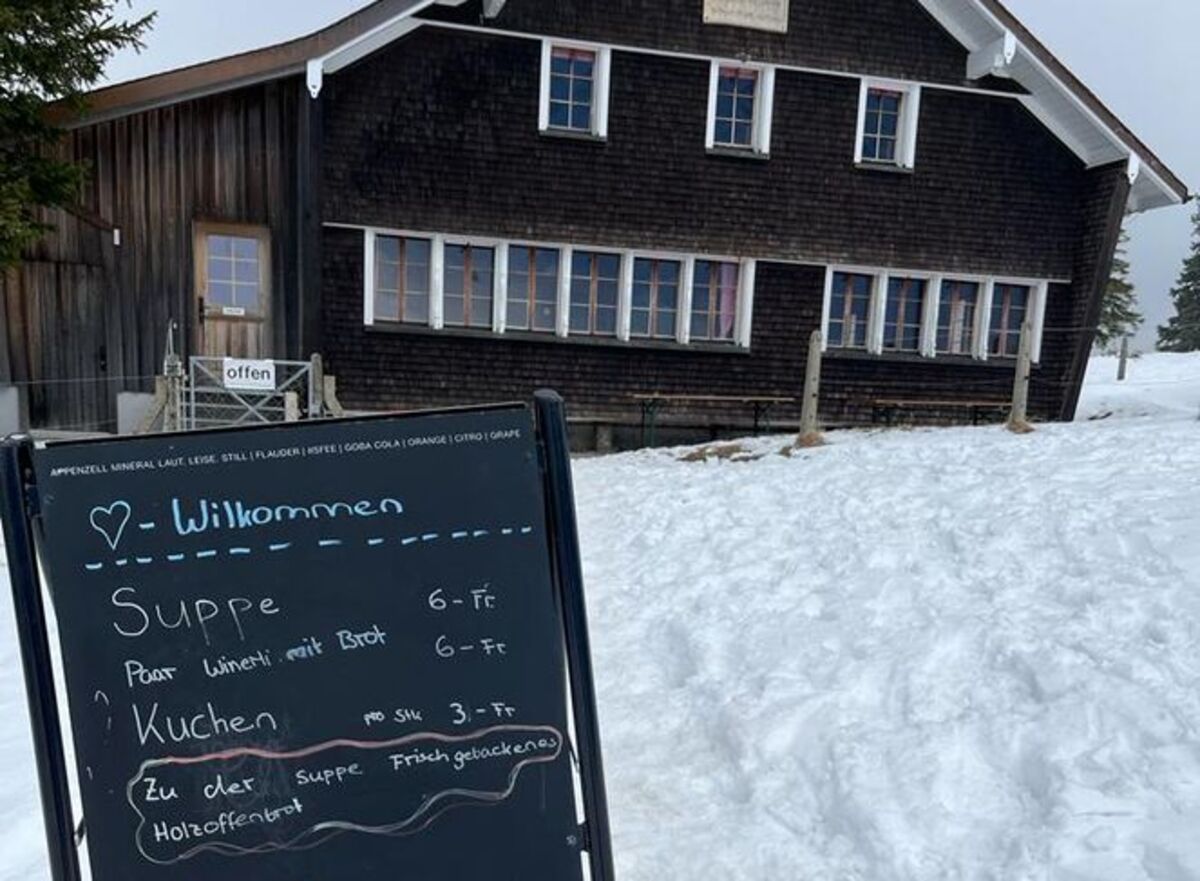 offen
APPENZELL MINERAL LAUT. LEISE. STILL | FLAUDER | ISFEE | GOBA COLA | ORANGE | CITRO | GRAPE
- Wilkommen
Suppe 6-Fr.
Paar Winerli mit Brot 6-Fr
Kuchen pro Stk 3.-Fr
Zu der Suppe Frisch gebackenes
Holzoffenbrot